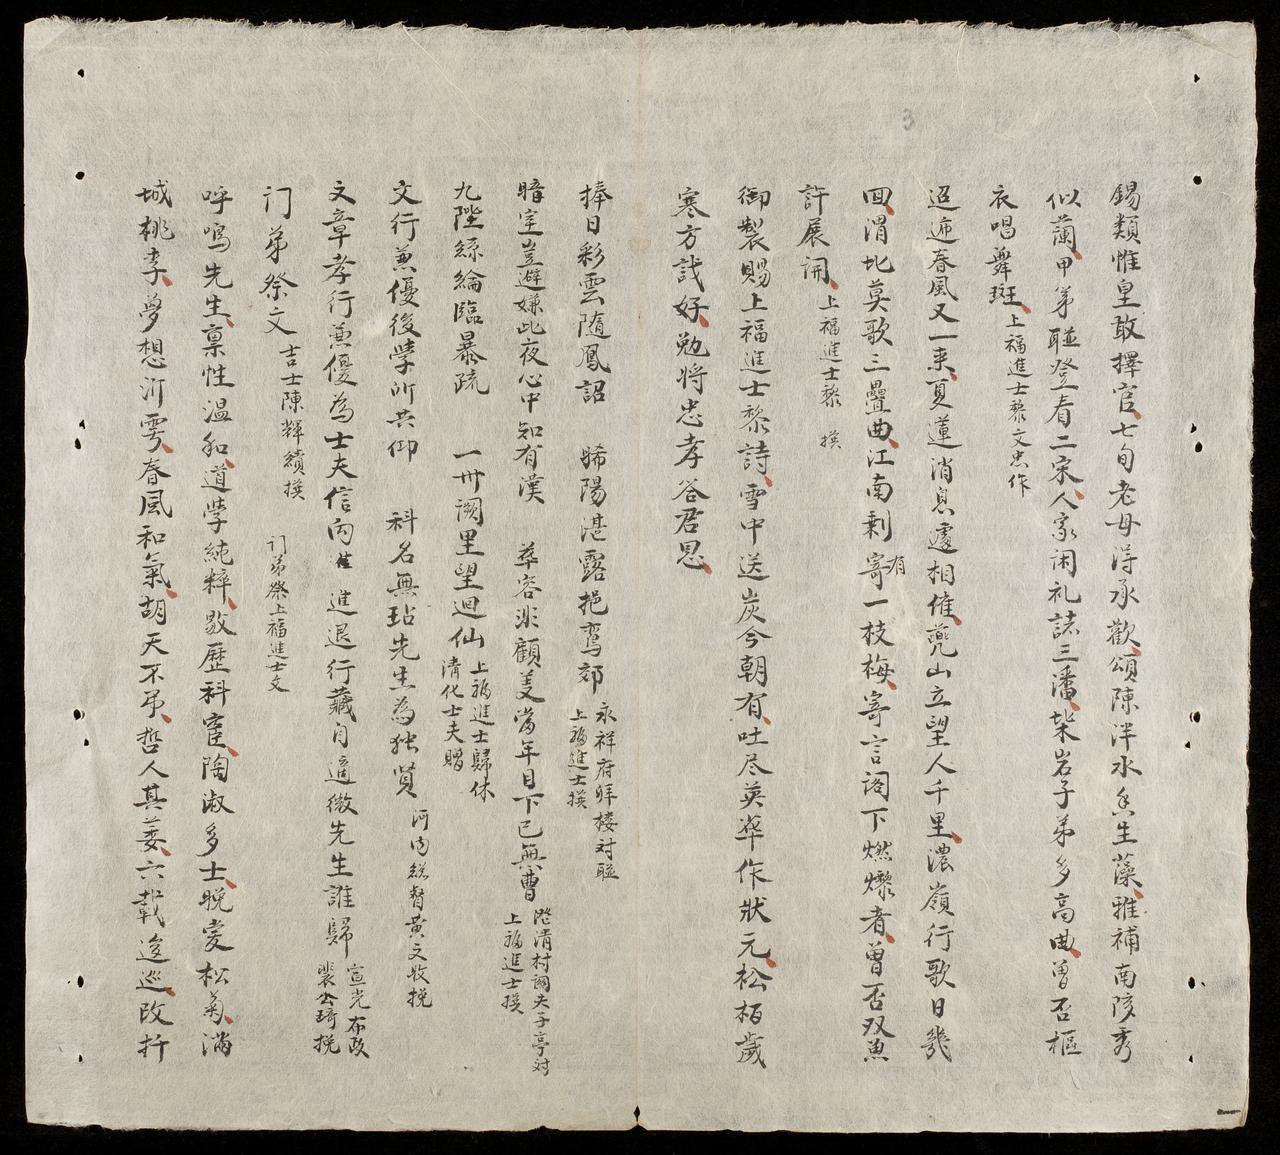 錫類惟皇敢擇官七旬老母淂承歡頌陳泮水魚生藻雅補南陔秀
似蘭甲第联登看二宋人家闲礼誌三潘柴岩子弟多高曲曾否樞
衣唱舞斑上福進士黎文忠作
迢逓春風又一来夏蓮消息遽相催山立望人千里濃嶺行歌日幾
回渭北莫歌三疊曲江南剩有寄一枝梅寄言阁下燃燦者曽否双魚
許展開上福進士黎 撰
御製賜上福進士黎詩雪中送炭今朝有吐尽英華作狀元松栢歲
寒方試好勉将忠孝答君恩
捧日彩雲随鳳詔 晞陽湛露挹鸾郊 永祥府拜楼对联 上福進士撰
暗室豈避嫌此夜心中知有漢 華容非顧羙當年目下已無曹 澄清村關夫子亭对 上福進士撰
九陛絲綸臨暴疏 一卅闕里望廻仙 上福進士歸休 清化士夫贈
文行兼優後學所共仰 科名無玷先生為独賢 河内総督黄文收挽
文章孝行兼優為士夫信向 進退行藏自適微先生誰歸 宣光布政 裴公琦挽
门弟祭文 吉士陳輝績撰 门弟祭上福進士文
呼嗚先生禀性温和道學純粹敭歷科宦陶淑多士晚爱松菊满
城桃李夢想沂雩春風和氣胡天不吊哲人其萎六載逡巡改拆